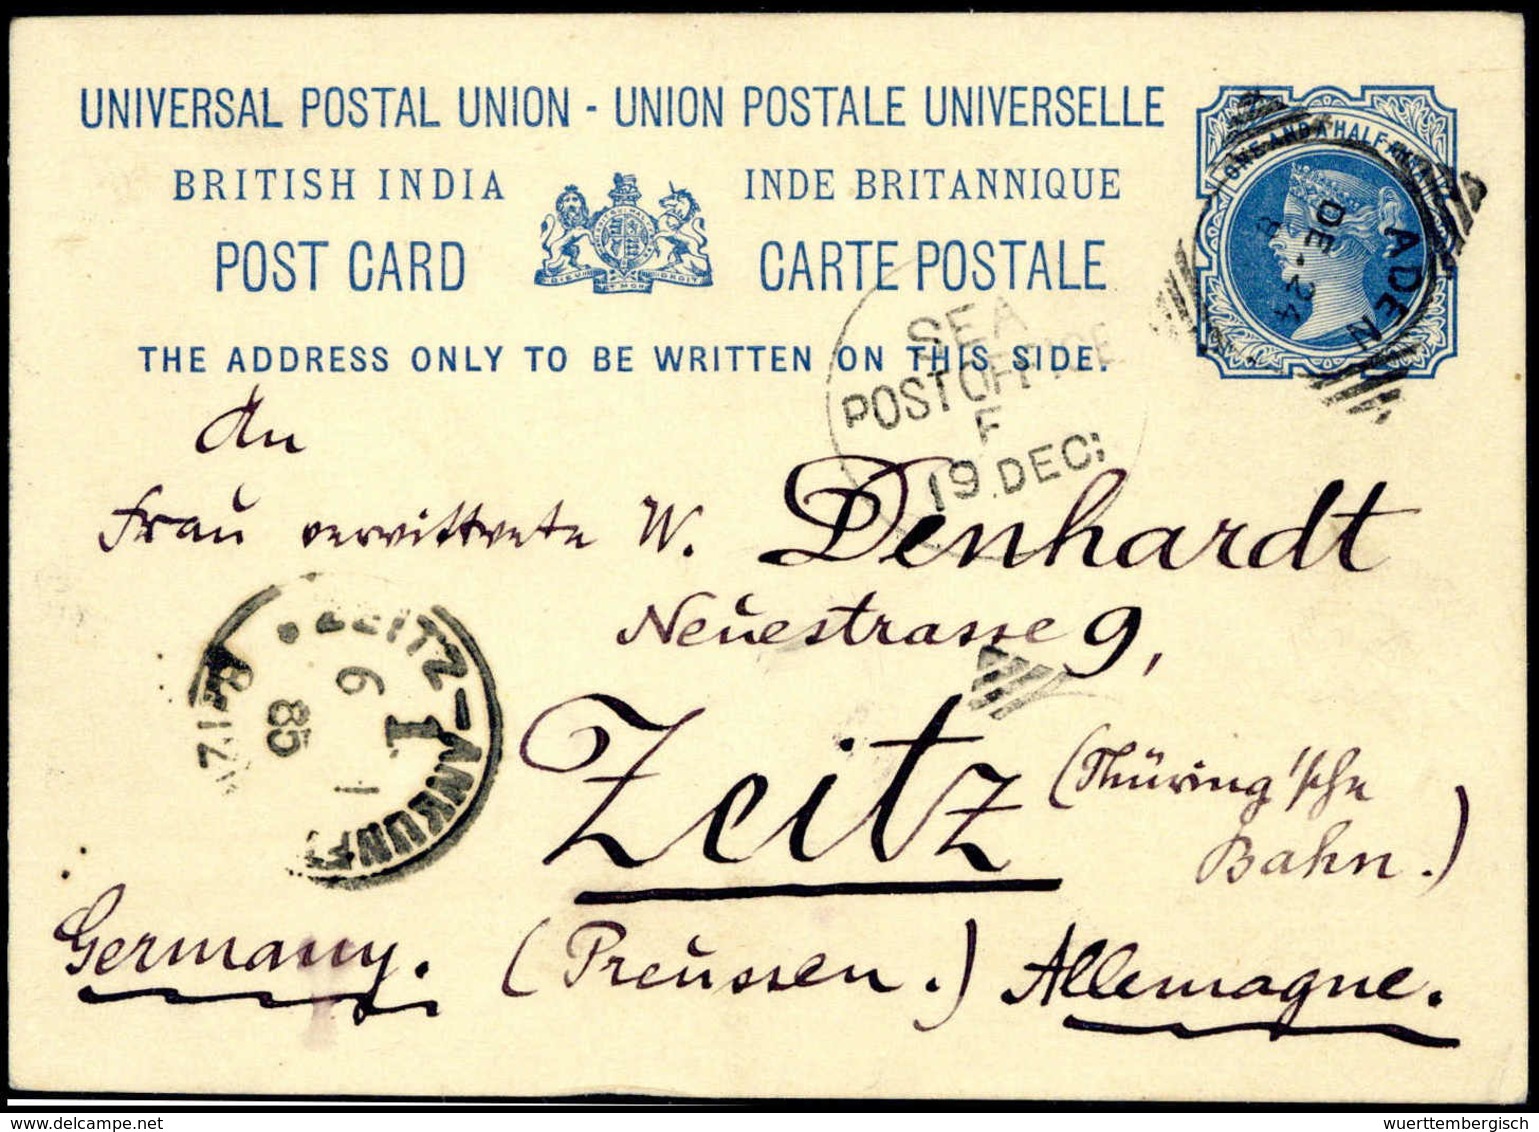 UNIVERSAL POSTAL UNION - UNION POSTALE UNIVERSELLE
BRITISH INDIA INDE BRITANNIQUE
POST CARD CARTE POSTALE
THE ADDRESS ONLY TO BE WRITTEN ON THIS SIDE.
ONE AND A HALF ANNA
ADEN
DE-24
SEA
POST OFFICE
F
19 DEC
An
Frau verwittwete W. Denhardt
Neuestrasse 9,
Zeitz (Thüring'sche
Bahn.)
Germany. (Preussen.) Allemagne.
ZEITZ-ANKUNFT
6
1
85
auktionen.wuerttembergisch